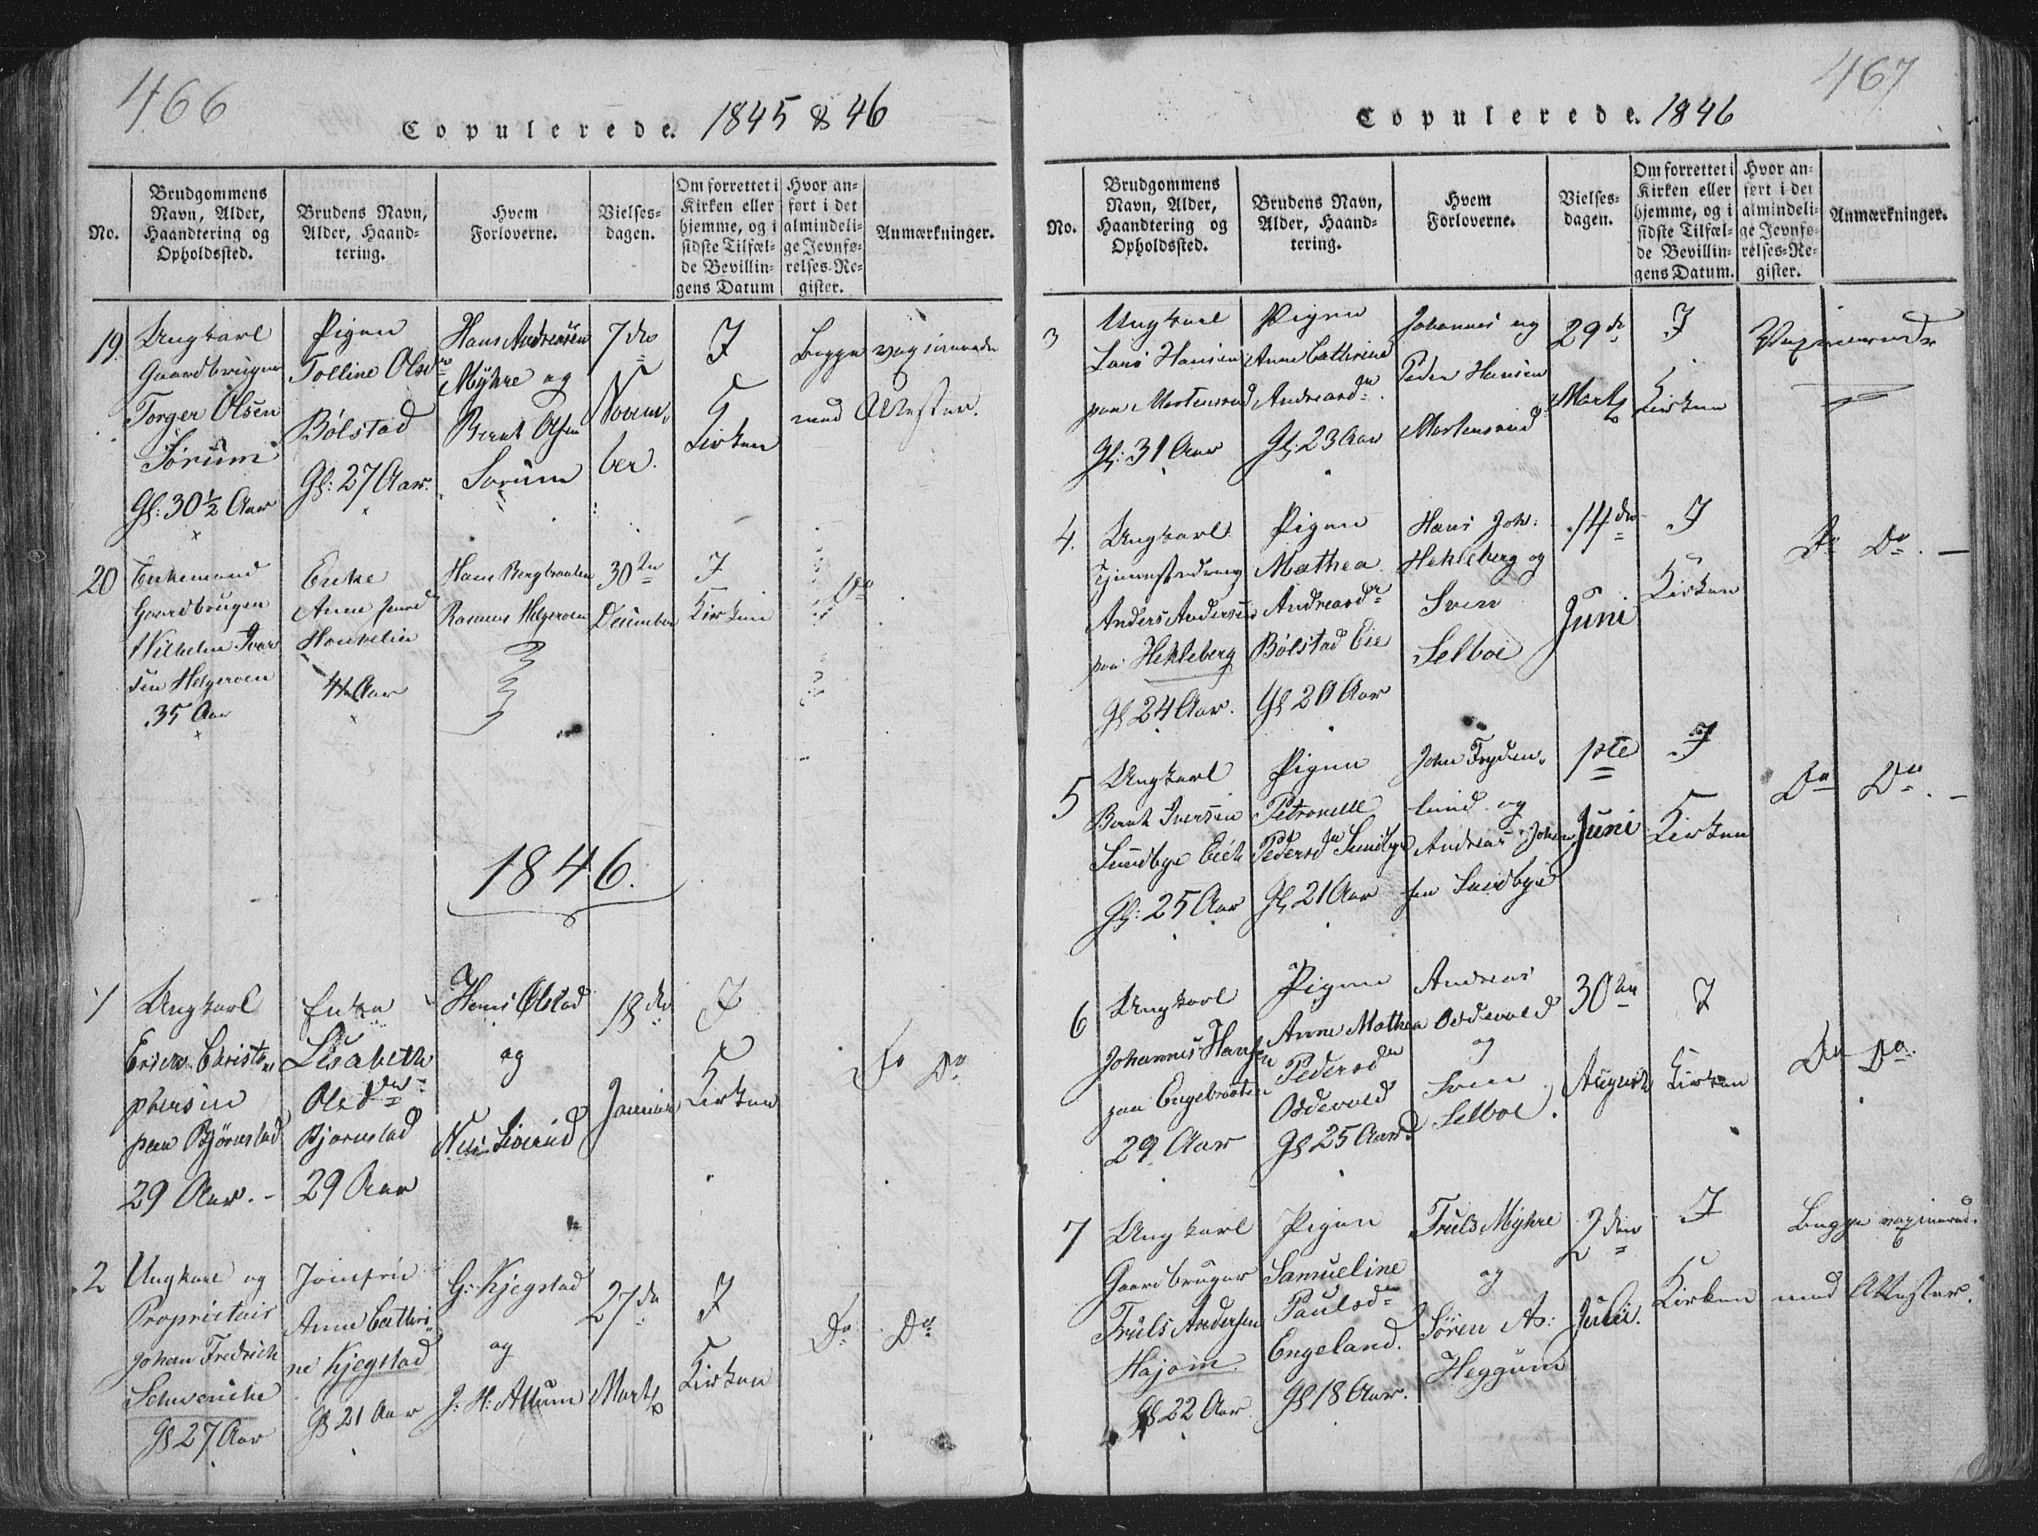 466
Copulerede. 1845 & 46
No.
Brudgommens
Navn, Alder,
Haandtering og
Opholdssted.
Brudens Navn,
Alder, Haand-
tering.
Hvem
Forloverne.
Vielses-
dagen.
Om forrettet i
Kirken eller
hjemme, og i
sidste Tilfæl-
de Bevillin-
gens Datum
Hvor an-
ført i det
almindeli-
ge Jevnfø-
relses-Re-
gister.
Anmærkninger.
19.
Ungkarl
Gaardbruger
Torger Olsen
Sørum
Gl: 30½ Aar
Pigen
Tolline Olsdr
Bølstad
Gl: 27 Aar.
Hans Andreasen
Myhre og
Bernt Olsen
Sorum
7de
Novem-
ber.
I
Kirken
Begge vaxinerede
med Attester.
20
Enkemand
Gaardbruger
Wilhelm Iver
sen Helgeroen
35 Aar
Enke
Anne
41 Aar
Hans
Rasmus Helgeroen
30te
December
I
Kirken
Do
1846.
1
Ungkarl
Christo
phersen
paa Bjørnstad
29 Aar. -
Enke
Lisabeth
Olsdr
Bjørnstad
29 Aar
Hans Ølstad
og
18de
Januar
I
Kirken
Do Do
2
Ungkarl og
Proprietair
Johan Fredrich
Schwencke
Gl 27 Aar
Jomfru
Anne Cathri
ne Kjegstad
Gl 21 Aar
G: Kjegstad
og
J. H: Allum
27de
Marts
I
Kirken
Do Do
467
Copulerede. 1846
No.
Brudgommens
Navn, Alder,
Haandtering og
Opholdssted.
Brudens Navn,
Alder, Haand-
tering.
Hvem
Forloverne.
Vielses-
dagen.
Om forrettet i
Kirken eller
hjemme, og i
sidste Tilfæl-
de Bevillin-
gens Datum.
Hvor an-
ført i det
almindeli-
ge Jevnfø-
relses-Re-
gister.
Anmærkninger.
3
Ungkarl
Lars Hansen
paa Mortensrud
Gl: 31 Aar
Pigen
Anne Cathrine
Andreasdr
Gl: 23 Aar
Johannes og
Peder Hansen
Mortensrud
29de
Marts
I
Kirken
Vaxinerede
4.
Ungkarl
Tjenestedreng
Anders Andersen
paa Hekleberg
Gl 24 Aar.
Pigen
Mathea
Andreasdr
Bølstad Eie
Gl 20 Aar
Hans Joh:
Hekleberg og
Sven
Selboe
14de
Juni
I
Kirken
Do Do. -
5
Ungkarl
Bernt Iversen
Sundbye Eiet
Gl: 25 Aar
Pigen
Petronelle
Pedersdr Sundbye
Gl 21 Aar
John Fryden-
lund og
Andreas Johan
sen Sundbye
1ste
Juni
I
Kirken
Do Do. -
6
Ungkarl
Johannes Hansen
paa Engebraaten
29 Aar
Pigen
Anne Mathea
Pedersdr
Oddevald
Gl 25 Aar
Andreas
Oddevald
og
Sven
Selboe.
30te
August
I
Kirken
Do Do.
7
Ungkarl
Gaardbruger
Truls Andersen
Hajom
Gl 22 Aar.
Pigen
Samueline
Paulsdr
Engeland.
Gl 18 Aar.
Truls Myhre
og
Søren As:
Heggum
2den
Julii.
I
Kirken
Begge vaxinered.
med Attester.